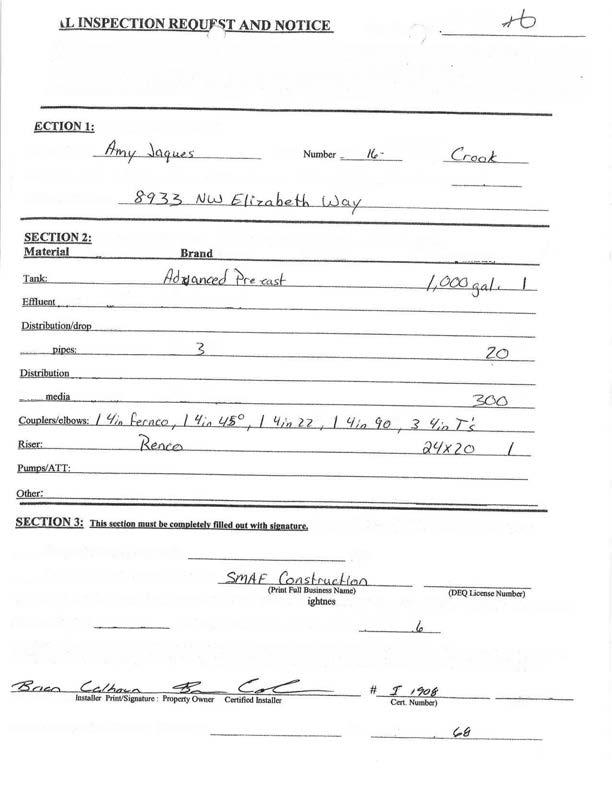 AL INSPECTION REQUEST AND NOTICE
ECTION 1:
Amy Jaques Number 16- Crook
8933 NW Elizabeth Way
SECTION 2:
Material Brand
Tank: Advanced Precast 1,000 gal. 1
Effluent
Distribution/drop
pipes: 3 20
Distribution
media 300
Couplers/elbows: 1 4in Fernco, 1 4in 45°, 1 4in 22, 1 4in 90, 3 4in T's
Riser: Renco 24x20 1
Pumps/ATT:
Other:
SECTION 3: This section must be completely filled out with signature.
SMAF Construction
(Print Full Business Name) (DEQ License Number)
ightnes
6
Brian Calhoun # I 1908
Installer Print/Signature : Property Owner Certified Installer Cert. Number)
68